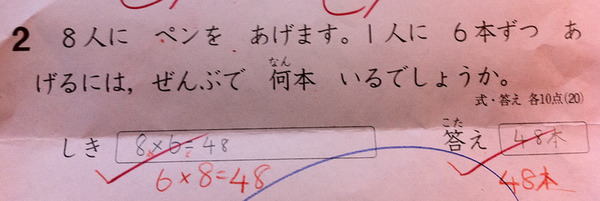 2 8人に ペンを あげます。1人に 6本ずつ あ
げるには，ぜんぶで 何本 いるでしょうか。
なん
式・答え 各10点(20)
しき 8×6=48
こた
答え 48本
6×8=48
48本